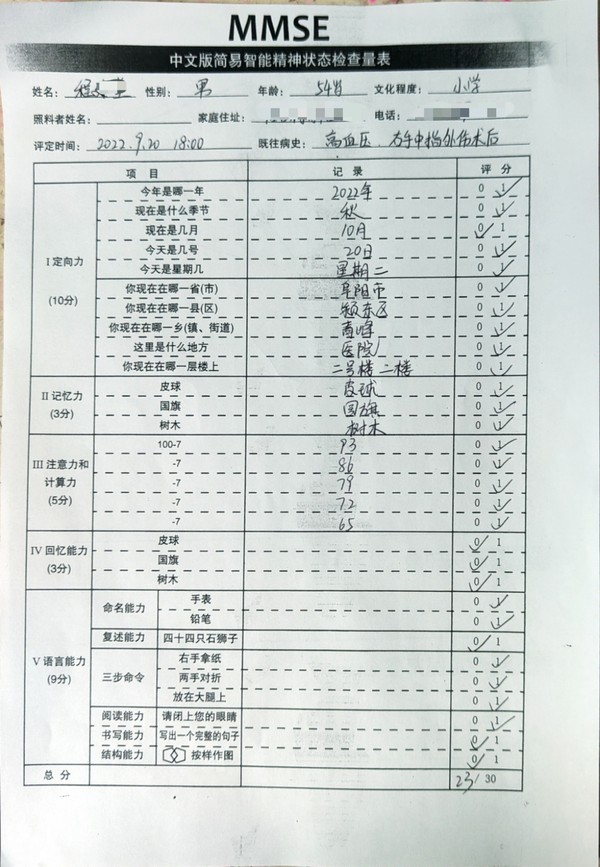 MMSE
中文版简易智能精神状态检查量表
姓名： 程 性别： 男 年龄： 54岁 文化程度： 小学
照料者姓名： 家庭住址： 电话：
评定时间： 2022.9.20 18:00 既往病史： 高血压、右手中指外伤术后
项 目 记 录 评 分
今年是哪一年 2022年 0 1
现在是什么季节 秋 0 1
现在是几月 10月 0 1
今天是几号 20日 0 1
I 定向力 今天是星期几 星期二 0 1
(10分) 你现在在哪一省(市) 阜阳市 0 1
你现在在哪一县(区) 颍东区 0 1
你现在在哪一乡(镇、街道) 0 1
这里是什么地方 医院 0 1
你现在在哪一层楼上 二号楼 二楼 0 1
II 记忆力 皮球 皮球 0 1
(3分) 国旗 国旗 0 1
树木 树木 0 1
100-7 93 0 1
III 注意力和 -7 86 0 1
计算力 -7 79 0 1
(5分) -7 72 0 1
-7 65 0 1
IV 回忆能力 皮球 0 1
(3分) 国旗 0 1
树木 0 1
命名能力 手表 0 1
铅笔 0 1
复述能力 四十四只石狮子 0 1
V 语言能力 右手拿纸 0 1
(9分) 三步命令 两手对折 0 1
放在大腿上 0 1
阅读能力 请闭上您的眼睛 0 1
书写能力 写出一个完整的句子 0 1
结构能力 按样作图 0 1
总 分 23/30